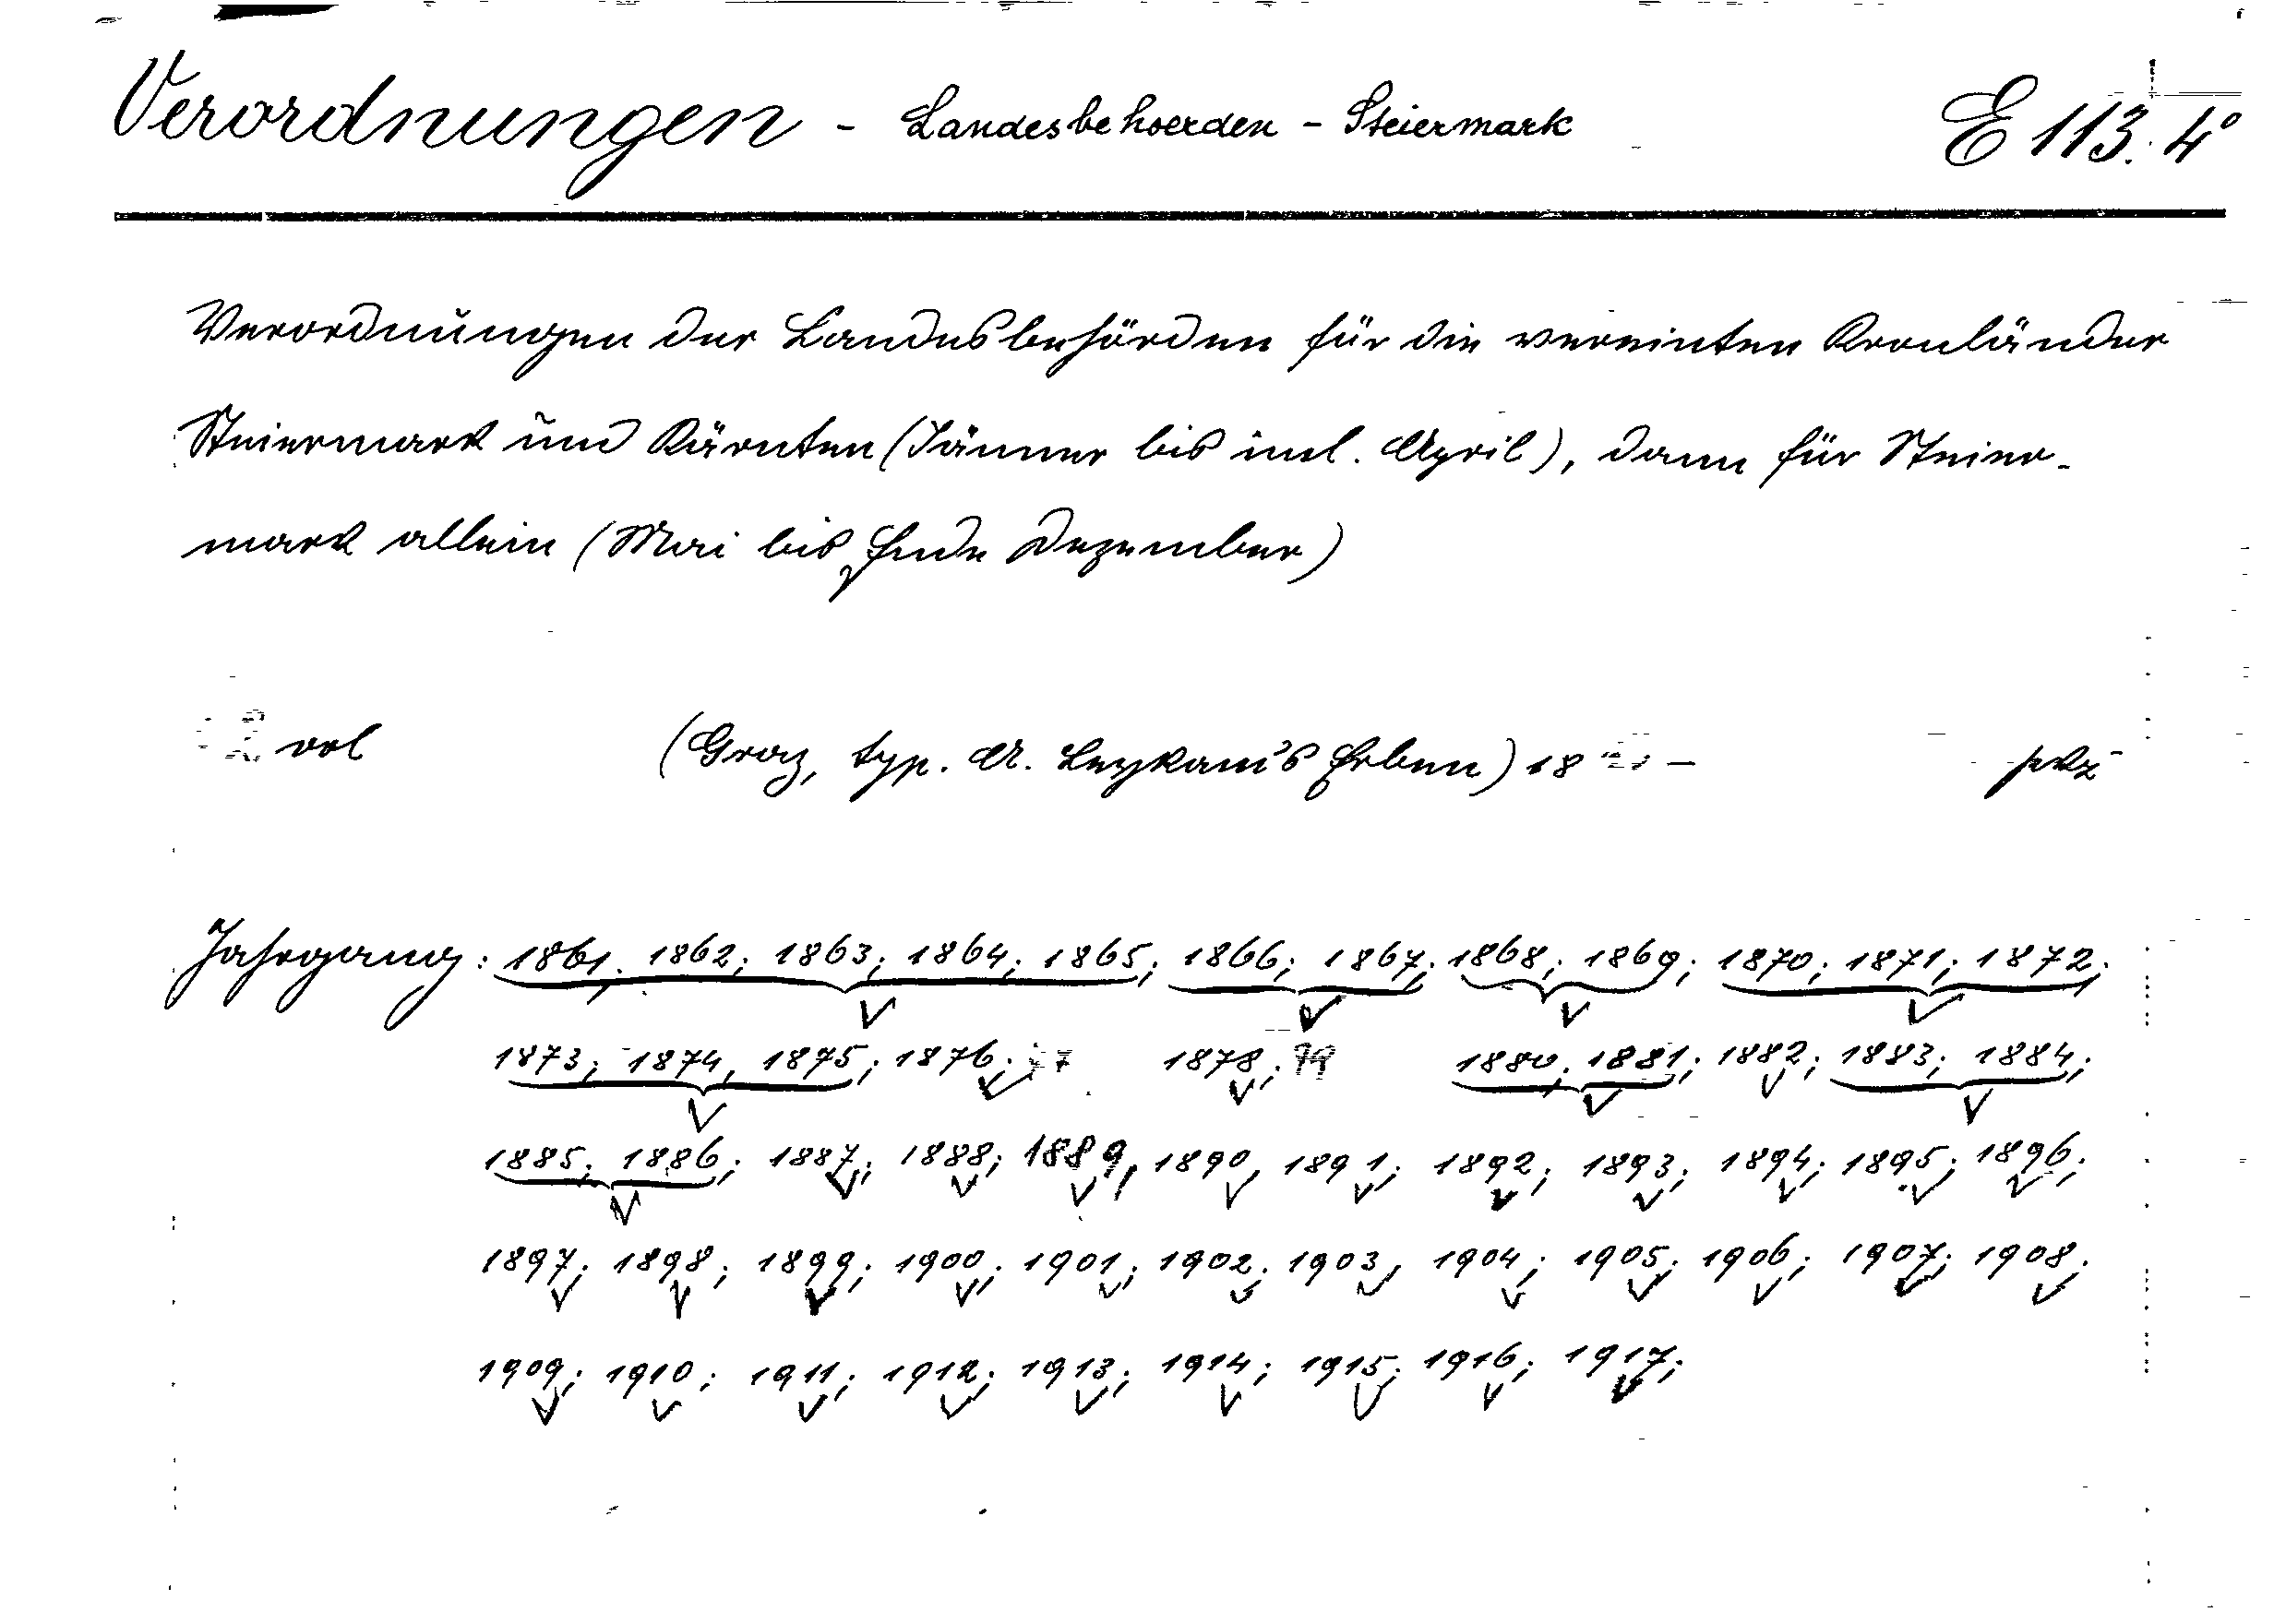 Verordnungen - Landesbehoerden - Steiermark E 113. 4°
Verordnungen der Landesbehörden für die vereinten Kronländer
Steiermark und Kärnten (Jänner bis incl. April), dann für Steier-
mark allein (Mai bis Ende Dezember)
vol (Graz, typ. A. Leykam's Erben) 18 —
Jahrgang: 1861, 1862; 1863; 1864; 1865; 1866; 1867; 1868; 1869; 1870; 1871; 1872;
1873; 1874, 1875; 1876; 77 1878; 79 1880, 1881; 1882; 1883; 1884;
1885; 1886; 1887; 1888; 1889, 1890, 1891; 1892; 1893; 1894; 1895; 1896;
1897; 1898; 1899; 1900; 1901; 1902; 1903, 1904; 1905; 1906; 1907; 1908;
1909; 1910; 1911; 1912; 1913; 1914; 1915; 1916; 1917;